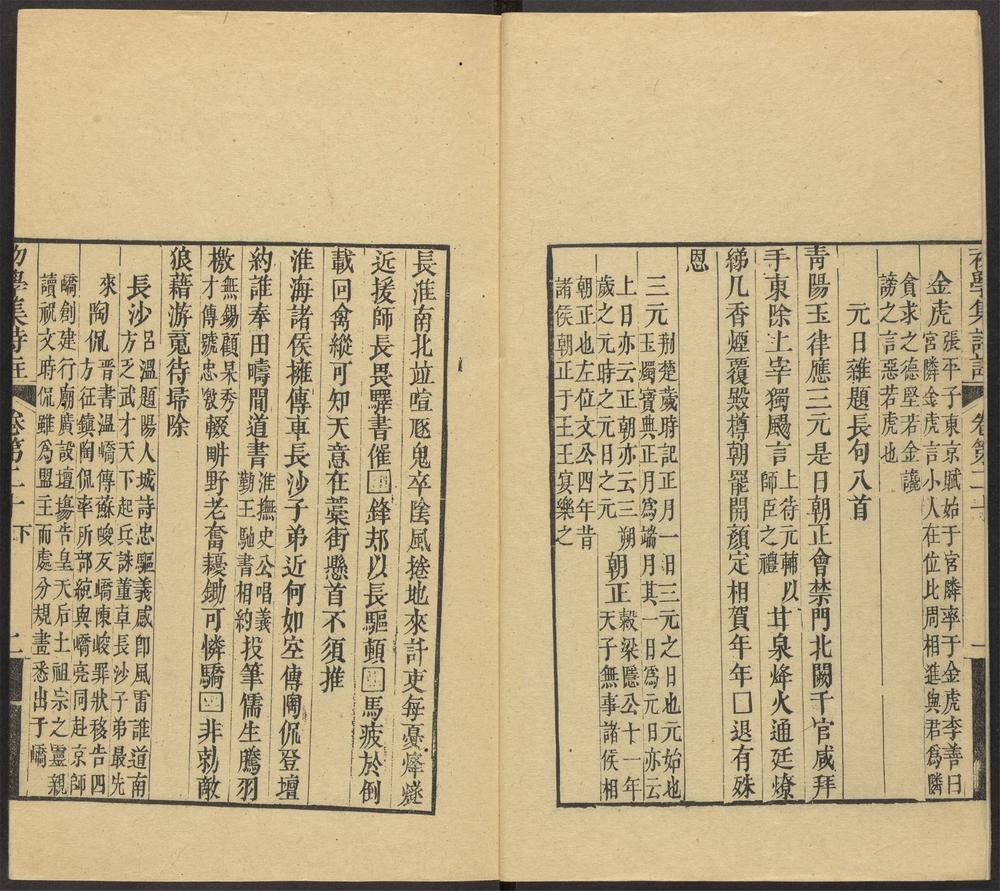 初學集詩註 卷第二十 一
金虎 張平子東京賦始于宮隣率于金虎李善曰
宮隣金虎言小人在位比周相進與君爲隣
貪求之德堅若金讒
謗之言惡若虎也
元日雜題長句八首
青陽玉律應三元是日朝正會禁門北闕千官咸拜
手東除上宰獨颺言 上待元輔以師臣之禮 甘泉烽火通廷燎
綈几香煙覆殿樽朝罷開顏定相賀年年□退有殊
恩
三元 荆楚歲時記正月一日三元之日也元始也
玉燭寶典正月爲端月其一日爲元日亦云
上日亦云正朝亦云三朔
歲之元時之元日之元 朝正 穀梁隱公十一年
天子無事諸侯相
朝正也左位文公四年昔
諸侯朝正于王王宴樂之
長淮南北竝喧豗鬼卒陰風捲地來訐吏每憂烽燧
近援師長畏驛書催□鋒刼以長驅頓□馬疲於倒
載回禽縱可知天意在藁街懸首不須推
淮海諸侯擁傳車長沙子弟近何如空傳陶侃登壇
約誰奉田疇間道書 淮撫史公唱義勤王馳書相約 投筆儒生騰羽
檄 無錫顧杲秀才傳號忠檄 輟畊野老奮耰鋤可憐驕□非勍敵
狼藉游䰟待埽除
長沙 呂溫題陽人城詩忠驅義感卽風雷誰道南
方乏武才天下起兵誅董卓長沙子弟最先
來 陶侃 晉書溫嶠傳蘇峻反嶠陳峻罪狀移告四
方征鎮陶侃率所部統與嶠亮同赴京師
嶠創建行廟廣設壇塲告皇天后土祖宗之靈親
讀祝文時侃雖爲盟主而處分規畫悉出于嶠
初學集詩註 卷第二十 下 二